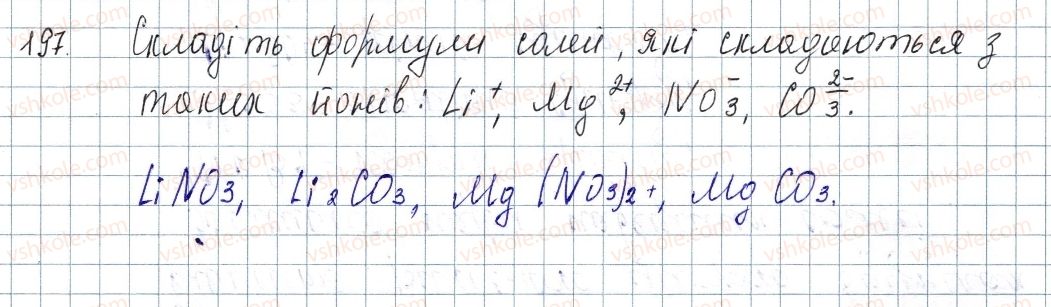 197. Складіть формули солей, які складаються з
таких йонів: Li⁺, Mg²⁺, NO₃⁻, CO₃²⁻.
LiNO₃, Li₂CO₃, Mg(NO₃)₂₊, MgCO₃.